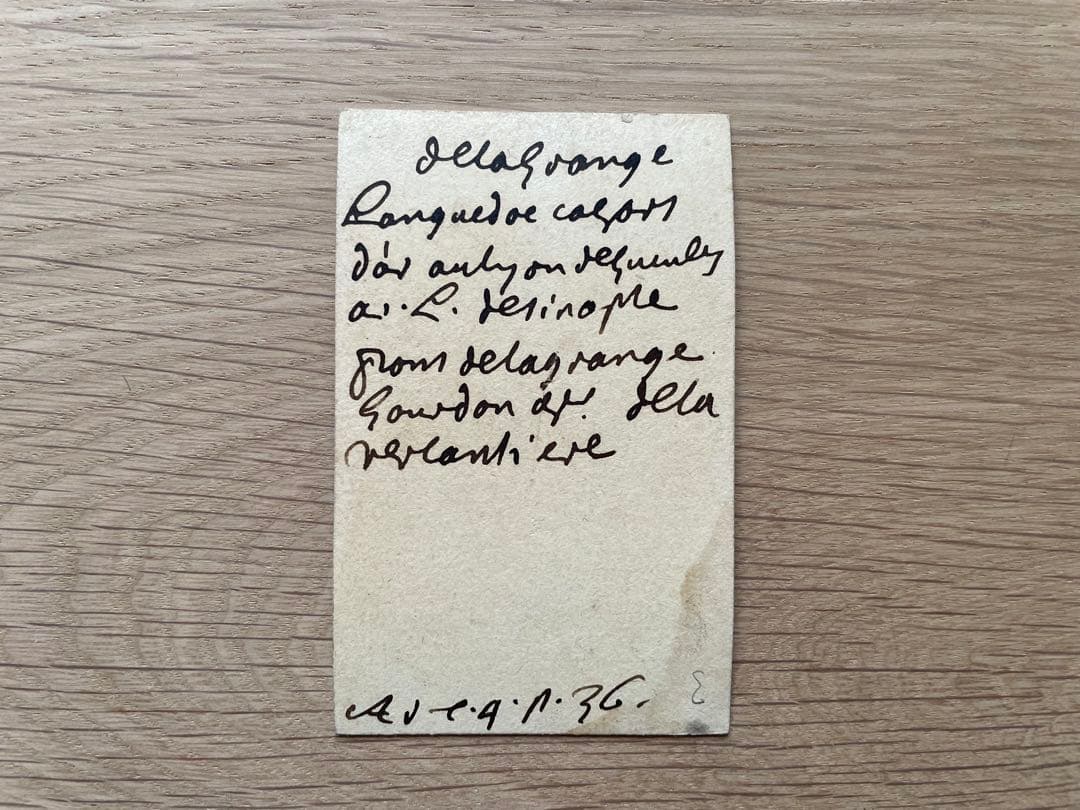 delaGrange
Languedoc cahors
d'ór au lyon deGueules
ar. L. desinople
delagrange
Gourdon &r. dela
vercantiere
A v e.q.p.36.